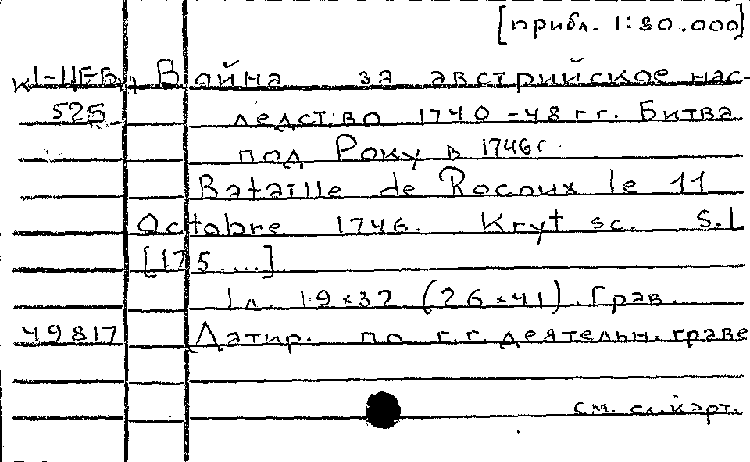 [прибл. 1:80.000]
Война за австрийское нас-
525 ледство 1740-48 гг. Битва
под Року в 1746 г.
Bataille de Rocoux le 11
Octobre 1746. Kryt sc. S.L
[175...]
1 л. 19×32 (26×41). Грав.
49817 Датир. по г.г. деятельн. граве
см. сл. карт.